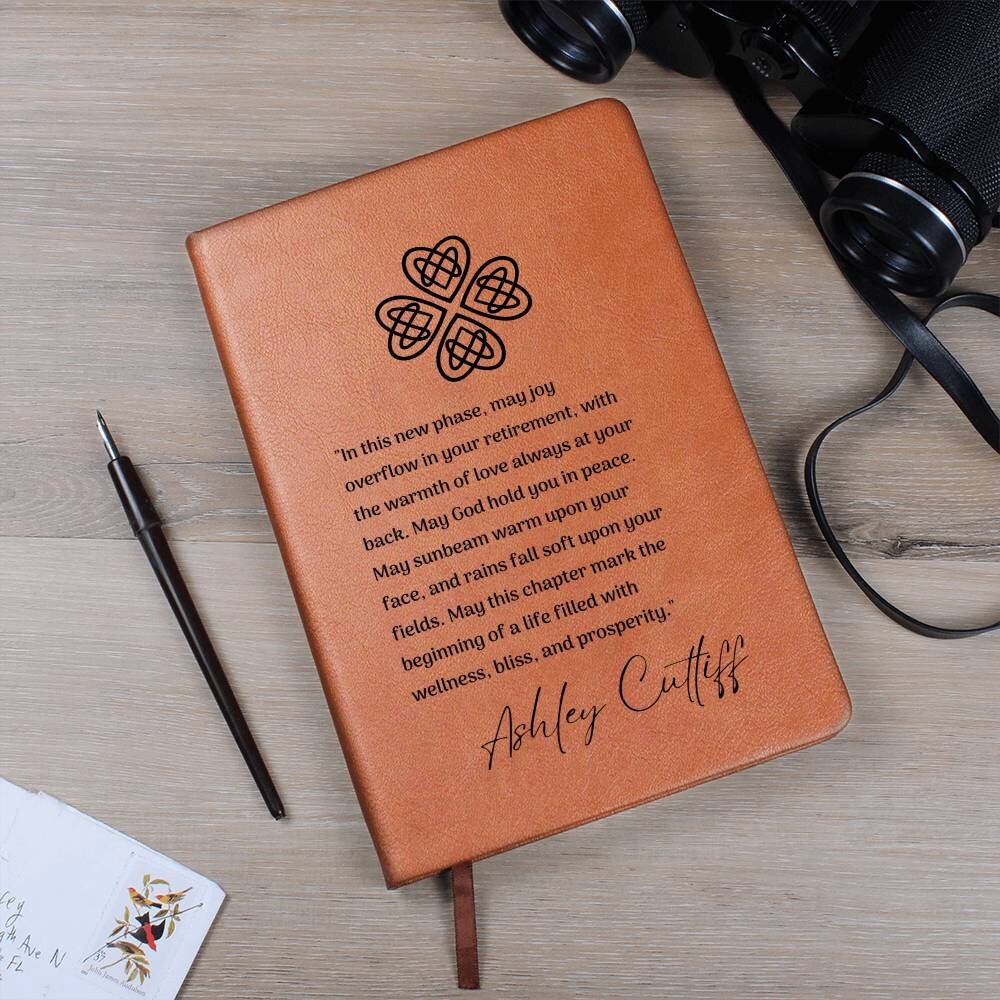 "In this new phase, may joy
overflow in your retirement, with
the warmth of love always at your
back. May God hold you in peace.
May sunbeam warm upon your
face, and rains fall soft upon your
fields. May this chapter mark the
beginning of a life filled with
wellness, bliss, and prosperity."
Ashley Cuttiff
Ave N
FL
37
John James Audubon